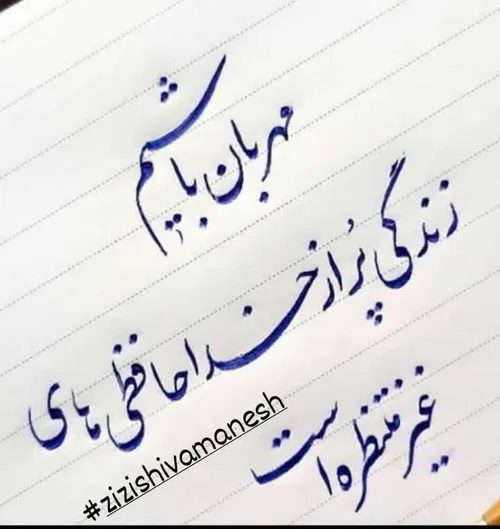 مهربان باشیم
زندگی پُر از خداحافظی های
غیرمنتظره است
#zizishivamanesh